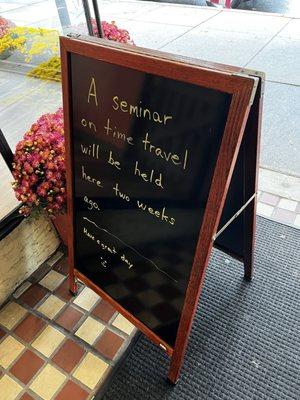 A seminar
on time travel
will be held
here two weeks
ago.
Have a great day!
:)